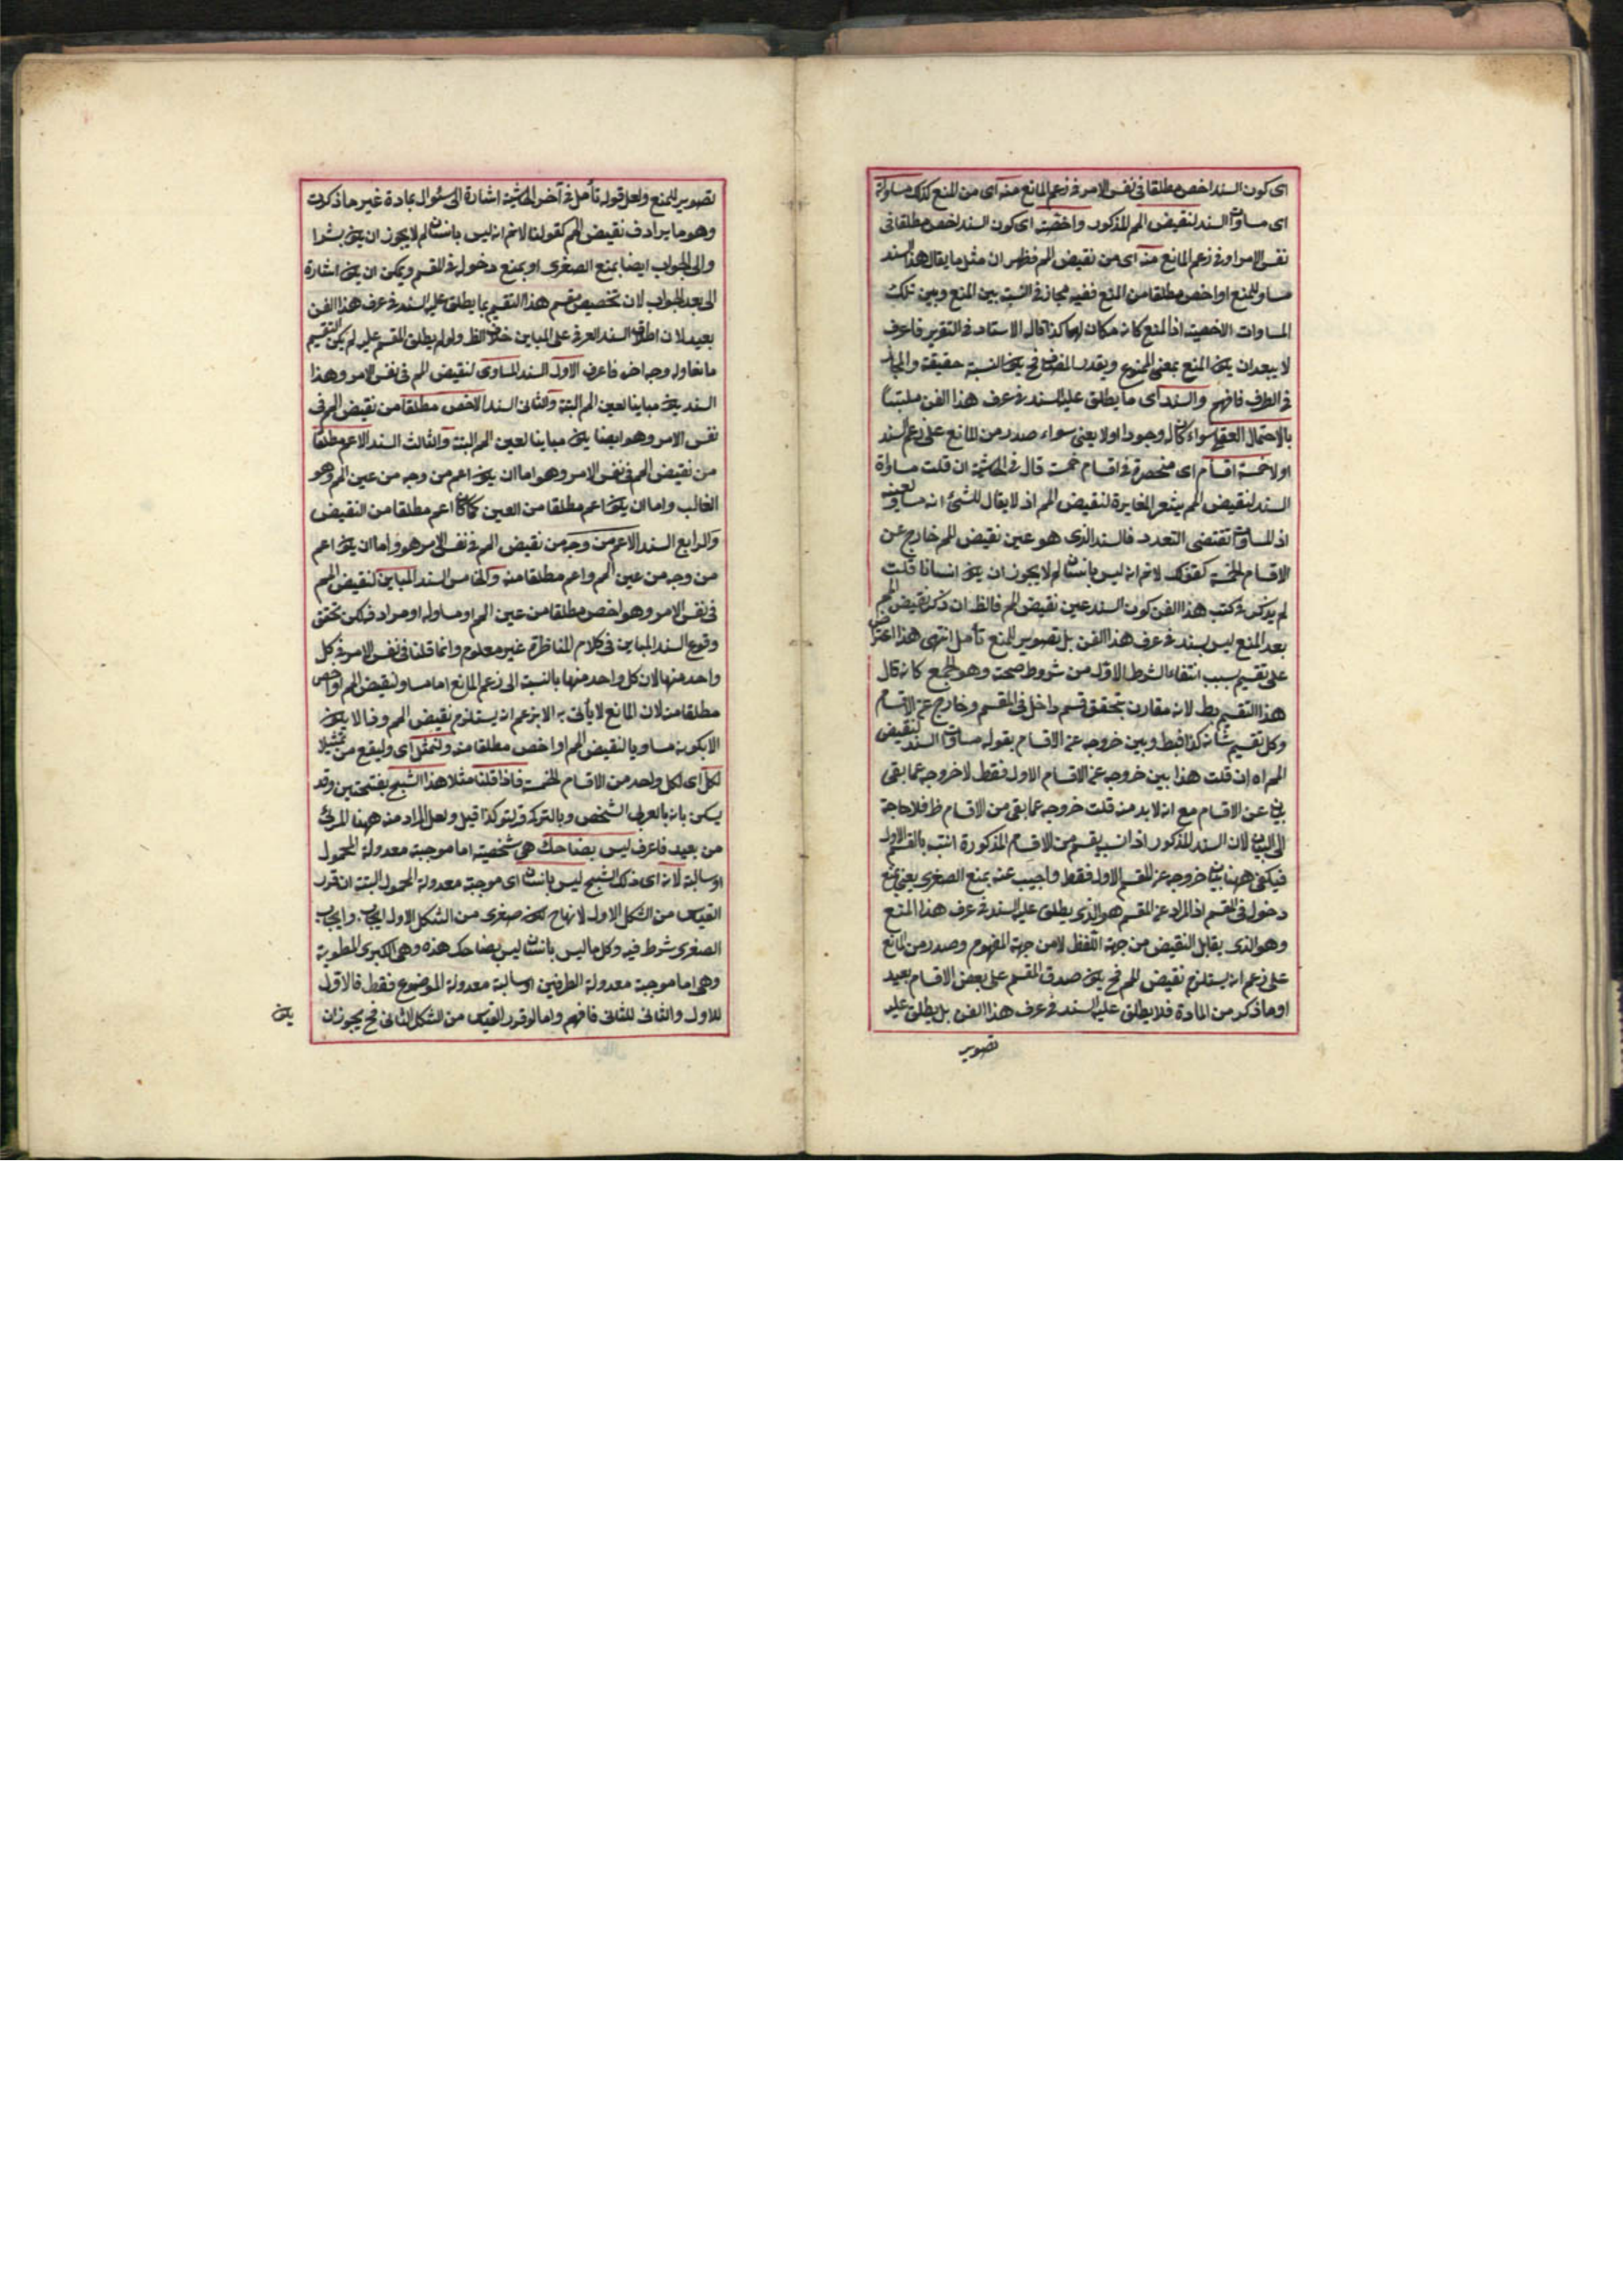 اى كون السند اخص مطلقا فى نفس الامر او فى زعم المانع منه اى من المنع كذلك مساواته
اى مساواة السند لنقيض المم المذكور واخصيته اى كون السند اخص مطلقا فى
نفس الامر او فى زعم المانع منه اى من نقيض المم فظهر ان مثل ما يقال هذا السند
مساو للمنع او اخص مطلقا من المنع ففيه مجاز فى النسبة بين المنع وبين تلك
المساوات الاخصية اذ المنع كانه مكان لها كذا قال الاستاد فى التقرير فاعرف
لا يبعد ان يكون المنع بمعنى الممنوع ويقدر المضاف فح يكون النسبة حقيقة والمجاز
فى الطرف فافهم والسند اى ما يطلق عليه السند فى عرف هذا الفن ملتبسا
بالاحتمال العقلى سواء كان له وجود او لا يعنى سواء صدر من المانع على زعم السند
اولا خمسة اقسام اى منحصرة فى اقسام خمسة قال فى الحاشية ان قلت مساواة
السند لنقيض المم يشعر المغايرة لنقيض المم اذ لا يقال للشئ انه مساو لعينه
اذ المساواة تقتضى التعدد فالسند الذى هو عين نقيض المم خارج عن
الاقسام الخمسة كقولك لانم انه ليس بانسان لم لا يجوز ان يكون انسانا قلت
لم يذكر فى كتب هذا الفن كون السند عين نقيض المم فالظ ان ذكر نقيض المم
بعد المنع ليس بسند فى عرف هذا الفن بل تصوير للمنع تأمل انتهى هذا اعتراض
على تقسيم بسبب انتفاء الشرط الاول من شروط صحته وهو الجمع كانه قال
هذا التقسيم بط لانه مقارن بتحقق قسم داخل فى المقسم وخارج عن الاقسام
وكل تقسيم شانه كذا فبط وبين خروجه عن الاقسام بقوله مساواة السند لنقيض
المم اه ان قلت هذا بين خروجه عن الاقسام الاول فقط لا خروجه عما بقى
عن الاقسام مع انه لا بد منه قلت خروجه عما بقى من الاقسام ظ فلا حاجة
الى البيان لان السند المذكور اذ انسب بقسم من الاقسام المذكورة انسب بالقسم الاول
فيكفى ههنا بيان خروجه عن القسم الاول فقط واجيب عنه بمنع الصغرى يعنى بمنع
دخوله فى المقسم اذ المراد عن المقسم هو الذى يطلق عليه السند فى عرف هذا المنع
وهو الذى يقابل النقيض من جهة اللفظ لا من جهة المفهوم وصدر من المانع
على زعم انه يستلزم نقيض المم فح يكون صدق المقسم على بعض الاقسام بعيد
او ما ذكر من المادة فلا يطلق عليه السند فى عرف هذا الفن بل يطلق عليه
تصوير
تصوير للمنع ولعل قوله تأمل فى آخر الحاشية اشارة الى سئوال بمادة غير ما ذكرت
وهو ما يرادف نقيض المم كقولنا لانم انه ليس بانسان لم لا يجوز ان يكون بشرا
والى الجواب ايضا بمنع الصغرى او بمنع دخوله فى المقسم ويمكن ان يكون اشارة
الى بعد الجواب لان تخصيص مقسم هذا التقسيم بما يطلق عليه السند فى عرف هذا الفن
بعيد لان اطلاق السند العرفى على المباين خلاف الظ ولو لم يطلق المقسم عليه لم يكن التقسيم
ما نعا وله وجه اخر فاعرف الاول السند المساوى لنقيض المم فى نفس الامر وهذا
السند يكون مباينا لعين المم البتة والثانى السند الاخص مطلقا من نقيض المم فى
نفس الامر وهو ايضا يكون مباينا لعين المم البتة والثالث السند الاعم مطلقا
من نقيض المم فى نفس الامر وهو اما ان يكون اعم من وجه من عين المم وهو
الغالب واما ان يكون اعم مطلقا من العين كما كان اعم مطلقا من النقيض
والرابع السند الاعم من وجه من نقيض المم فى نفس الامر وهو اما ان يكون اعم
من وجه من عين المم واعم مطلقا منه والخامس السند المباين لنقيض المم
فى نفس الامر وهو اخص مطلقا من عين المم او مساو له او مرادف لكن تحقق
وقوع السند المباين فى كلام المناظرة غير معلوم وانما قلنا فى نفس الامر فى كل
واحد منها لان كل واحد منها بالنسبة الى زعم المانع اما مساو لنقيض المم او اخص
مطلقا منه لان المانع لا يأتى به الا بزعم انه يستلزم نقيض المم وذا لا يكون
الا بكونه مساويا لنقيض المم او اخص مطلقا منه ولنمثل اى وليقع من تمثيلا
لكل اى لكل واحد من الاقسام الخمسة فاذا قلنا مثلا هذا الشبح بفتحتين وقد
يسكن بائه بالعربى الشخص وبالتركى قرلتو كذا قيل ولعل المراد منه ههنا المرئى
من بعيد فاعرف ليس بضاحك هى شخصية اما موجبة معدولة المحمول
او سالبة لانه اى ذلك الشبح ليس بانسان اى موجبة معدولة المحمول البتة ان قرر
القياس من الشكل الاول لانها ح يكون صغرى من الشكل الاول ايجاب وايجاب
الصغرى شرط فيه وكل ما ليس بانسان ليس بضاحك هذه وهى الكبرى المطوية
وهى اما موجبة معدولة الطرفين او سالبة معدولة الموضوع فقط فالاول
للاول والثانى للثانى فافهم واما لو قرر القياس من الشكل الثانى فح يجوز ان
يكون